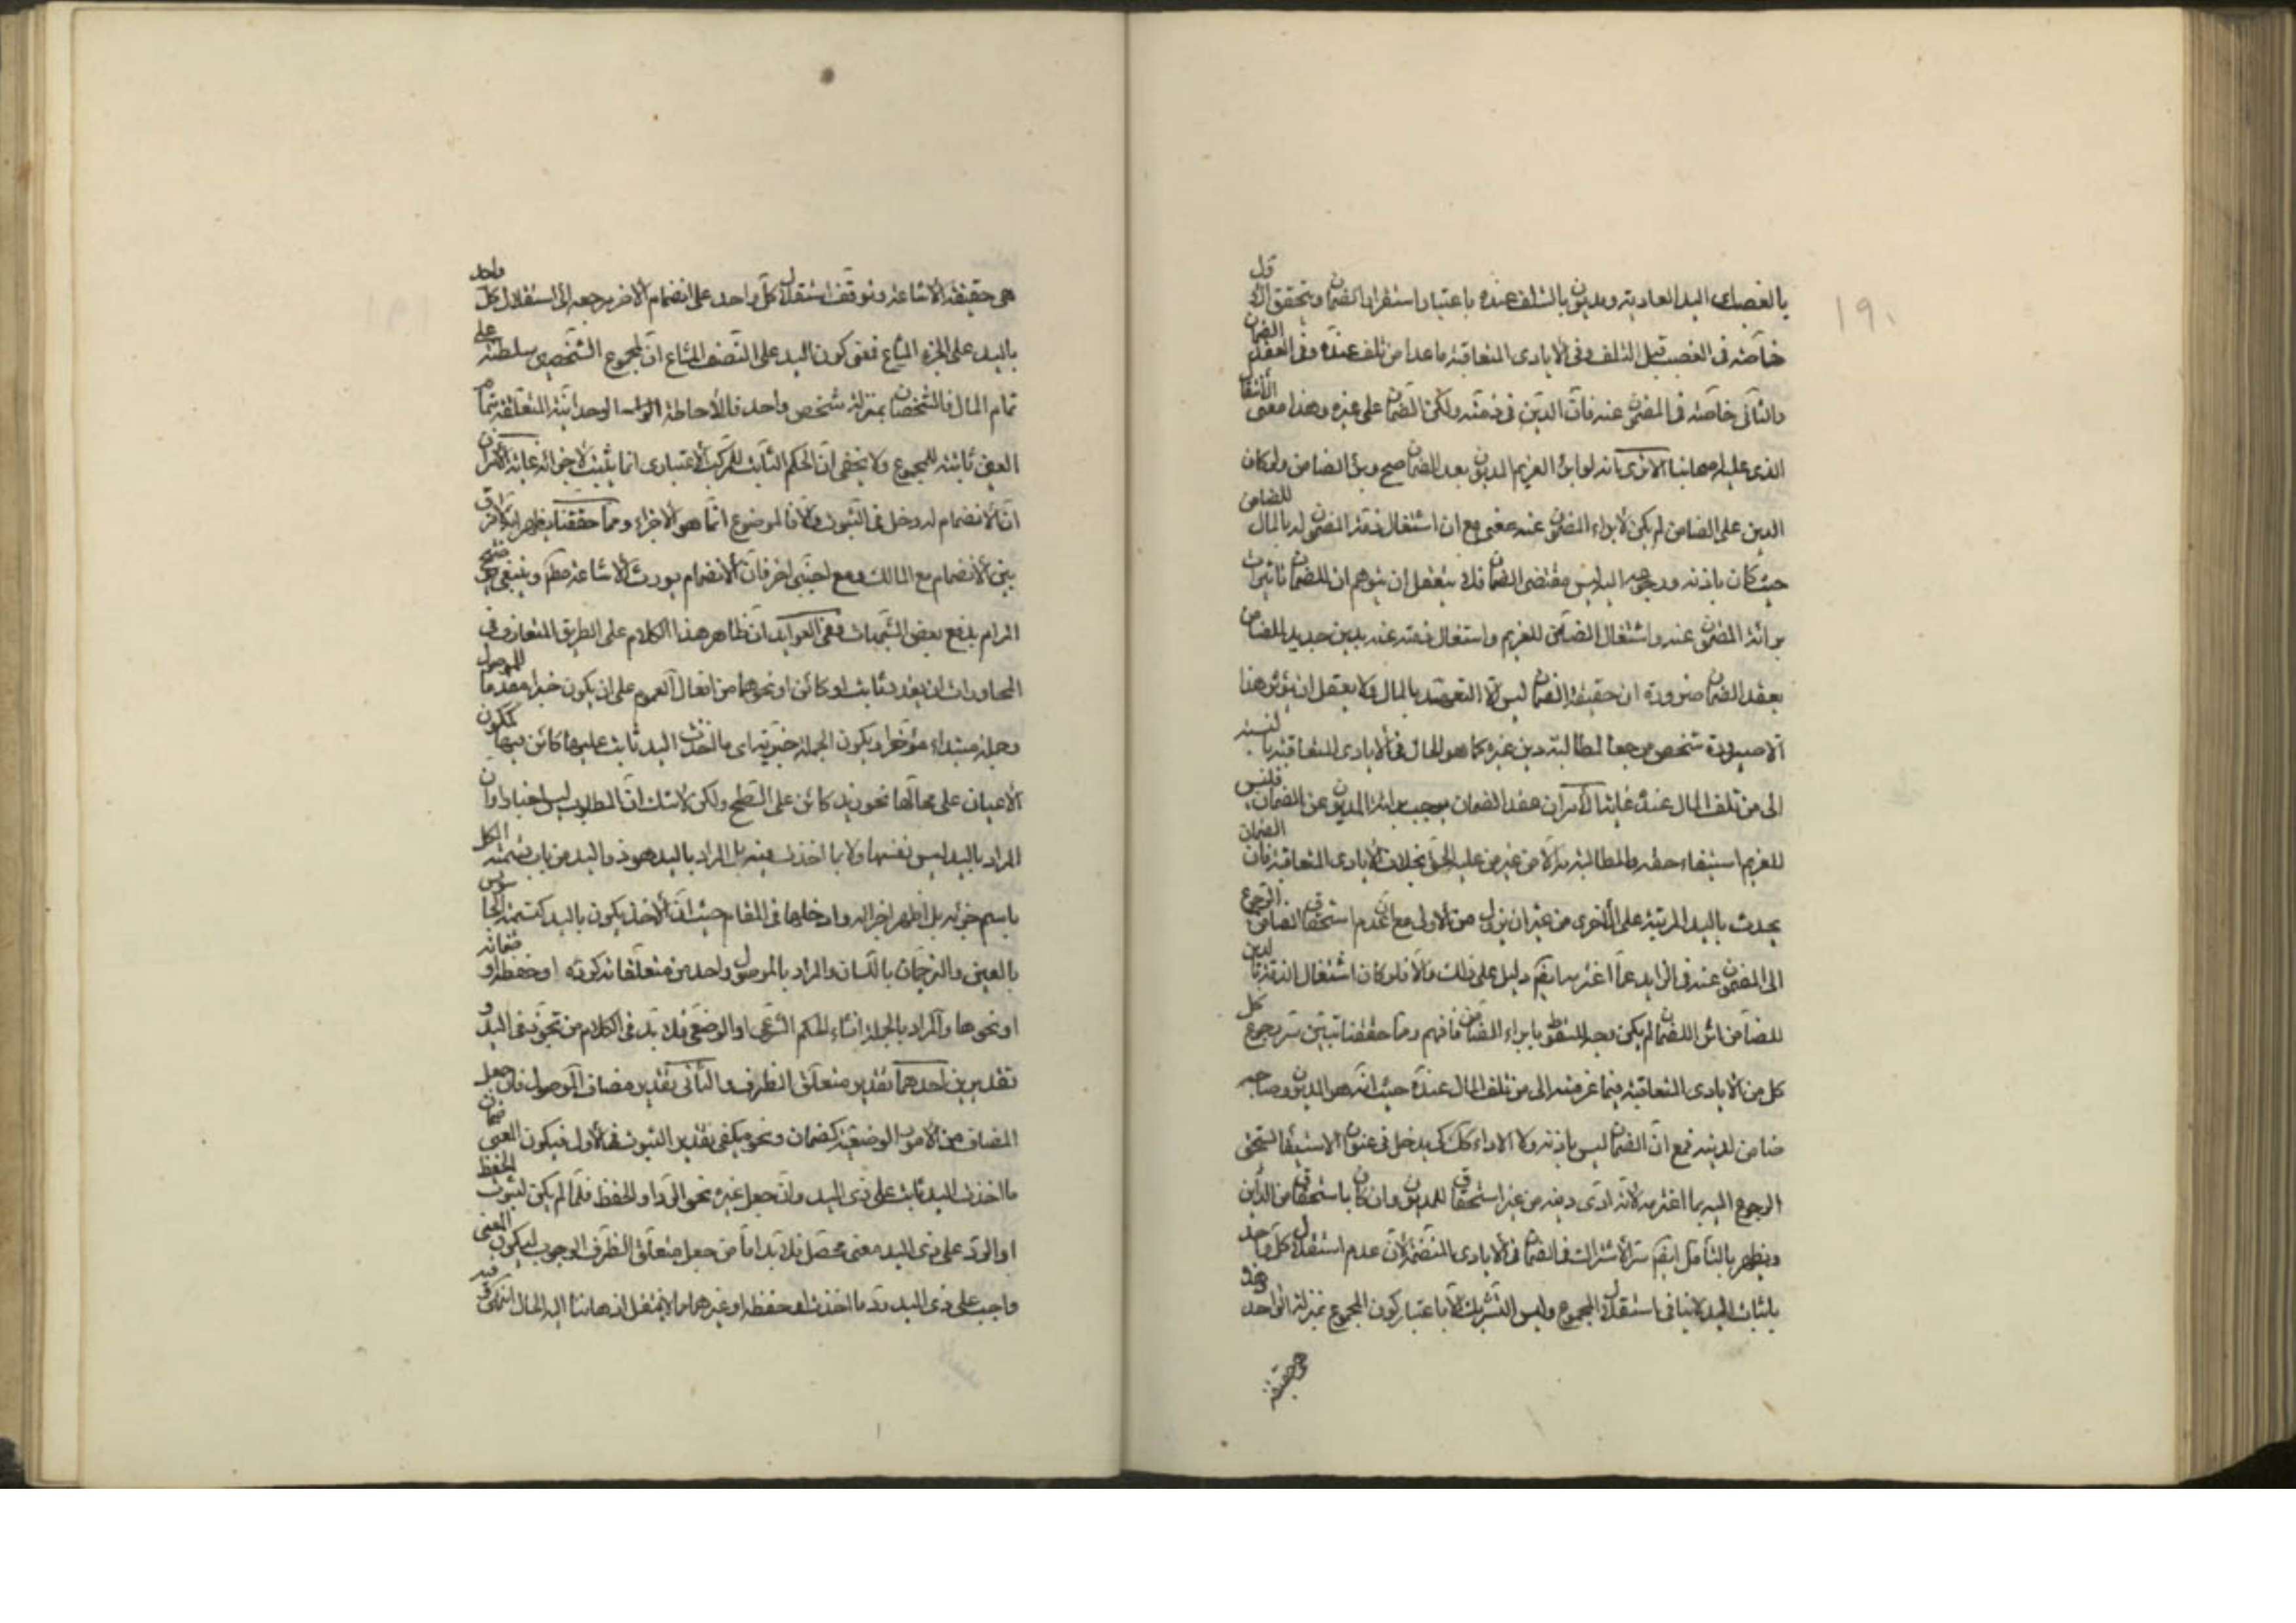 ١٩٠
بالغصب اى اليد العادية ومديون بالتلف عنده باعتبار استقرار الضمان ويتحقق الاول
خاصة فى الغصب قبل التلف وفى الايادى المتعاقبة ما عدا من تلف عنده وفى العقد الضمان
والثانى خاصة فى المضمون عنه فان الدين فى ذمته ولكن الضمان على غيره وهذا معنى الانتقال
الذى عليه اصحابنا الا ترى انه لو ابرء الغريم المديون بعد الضمان صح وبرئ الضامن ولو كان
الدين على الضامن لم يكن لابراء المضمون عنه معنى مع ان اشتغال ذمة المضمون له بالمال للضامن
حيث كان باذنه ورجوعه اليه ليس مقتضى الضمان فلا يتعقل ان يتوهم ان للضمان تاثيرات
برائة المضمون عنه واشتغال الضامن للغريم واشتغال ذمته عنه بدين جديد للضامن
بعقد الضمان ضرورة ان حقيقة الضمان ليس الا التعهد بالمال ولا يعقل ان يؤثر هذا
الا صيرورة شخص مرجعا لمطالبة دين غيره كما هو الحال فى الايادى المتعاقبة بالنسبة
الى من تلف المال عنده غاية الامر ان عقد الضمان يوجب برائة المديون عن الضمان فليس
للغريم استيفاء حقه والمطالبة به الا من غير من عليه الحق بخلاف الايادى المتعاقبة فان الضمان
يحدث باليد المرتبة على الاخرى من غير ان يزول من الاولى مع ان عدم استحقاق الضامن الرجوع
الى المضمون عنه فى الزايد عما اغترمه ايضا دليل على ذلك والا فلو كان اشتغال الذمة بالدين
للضامن اثر الضمان لم يكن وجه لسقوطه بابراء الضامن فافهم ومما حققنا تبين سر رجوع كل
كل من الايادى المتعاقبة فيما غرمته الى من تلف المال عنده حيث انه هو المديون وصاحبه
ضامن لدينه فمع ان الضمان ليس باذنه ولا الاداء كك يدخل فى عنوان الاستيفاء فيستحق
الرجوع اليه بما اغترمه لانه ادى دينه من غير استحقاق للمديون وان كان باستحقاق من الدائن
ويظهر بالتامل ايضا سر الاشتراك فى الضمان فى الايادى المنضمة لان عدم استقلال كل واحد
باثبات اليد لا ينافى استقلال المجموع وليس التشريك الا باعتبار كون المجموع بمنزلة الواحد وهذه
هى حقيقة
هى حقيقة الاشاعة وتوقف استقلال كل واحد على انضمام الاخر مرجعه الى استقلال كل واحد
باليد على الجزء المشاع فمعنى كون اليد على النصف المشاع ان لمجموع الشخصين سلطنة على
تمام المال فالشخصان بمنزلة شخص واحد فالاحاطة الوحدانية المتعلقة بتمام
العين ثابتة للمجموع ولا يخفى ان الحكم الثابت للمركب الاعتبارى انما يثبت لاجزائه غاية الامر ان
ان الانضمام له دخل فى الثبوت والا فالموضوع انما هو الاجزاء ومما حققنا يظهر انه لا فرق
بين الانضمام مع المالك ومع اجنبى اخر فان الانضمام يورث الاشاعة مطلقا وينبغى توضيح
المرام بدفع بعض الشبهات وفى العوايد ان ظاهر هذا الكلام على الطريق المتعارف فى
المحاورات ان يقدر ثابت او كائن او نحوهما من افعال العموم على ان يكون خبرا مقدما للموصول
وجعله مبتداء مؤخرا ويكون الجملة خبرية اى ما اخذت اليد ثابت عليها كائن فيها ككون
الاعيان على محالها نحو زيد كائن على السطح ولكن لا شك ان المطلوب ليس اخبارا وان
المراد باليد ليس نفسها ولا بما اخذت عينه بل المراد باليد هو ذو اليد من باب تسمية الكل
باسم جزئه بل اظهر اجزائه وادخلها فى المقام حيث ان الاخذ يكون باليد كتسمية الجاسوس
بالعين والترجمان باللسان والمراد بالموصول واحد من متعلقاته كرده او حفظه او ضمانه
او نحوها والمراد بالجملة انشاء الحكم الشرعى او الوضعى فلا بد فى الكلام من تجوز فى اليد و
تقديرين احدهما تقدير متعلق الظرف والثانى تقدير مضاف الموصول فان جعل
المضاف من الامور الوضعية كضمان ونحوه يكفى تقدير الثبوت فى الاول فيكون المعنى ضمان
ما اخذت اليد ثابت على ذى اليد وان جعل غيره نحو الرد او الحفظ فلما لم يكن لثبوت الحفظ
او الرد على ذى اليد معنى محصل فلا بد اما من جعل متعلق الظرف الوجوب ليكون المعنى
واجب على ذى اليد رد ما اخذت او حفظه او غيرهما